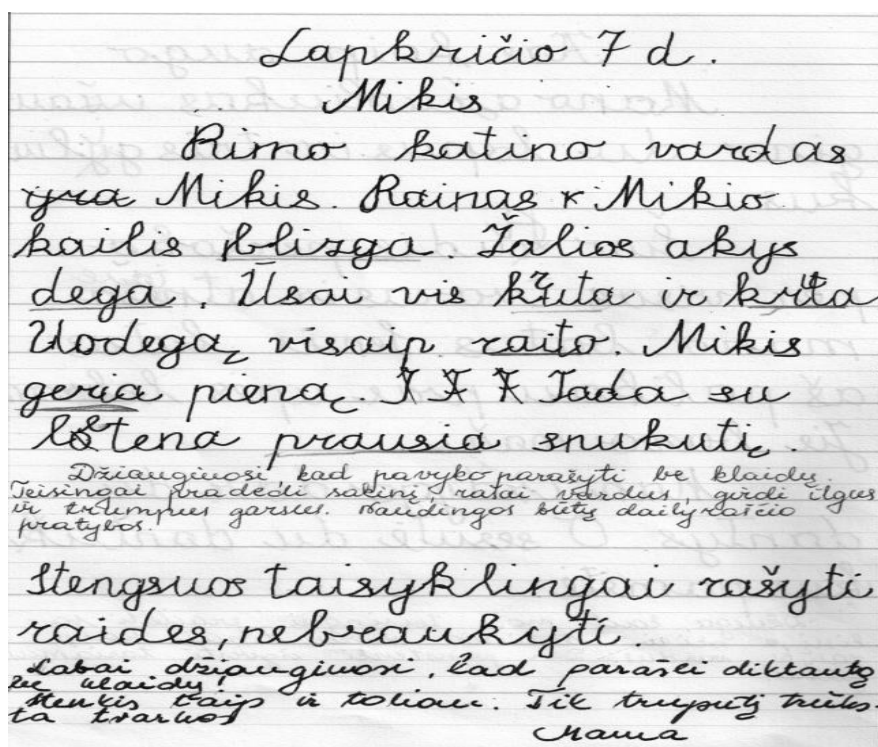 Lapkričio 7 d.
Mikis
Rimo katino vardas
yra Mikis. Rainas Mikio
kailis blizga. Žalios akys
dega. Ūsai vis kruta ir krita
Uodegą visaip raito. Mikis
geria pieną. Tada su
letena prausia snukutį.
Džiaugiuosi, kad pavyko parašyti be klaidų.
Teisingai pradedi sakinį, rašai vardus, girdi ilgus
ir trumpus garsus. Naudingos būtų dailyraščio
pratybos.
Stengsuos taisyklingai rašyti
raides, nebraukyti.
Labai džiaugiuosi, kad parašei diktantą
be klaidų!
Menkis taip ir toliau. Tik truputį trūks-
ta tvarkos
Mama